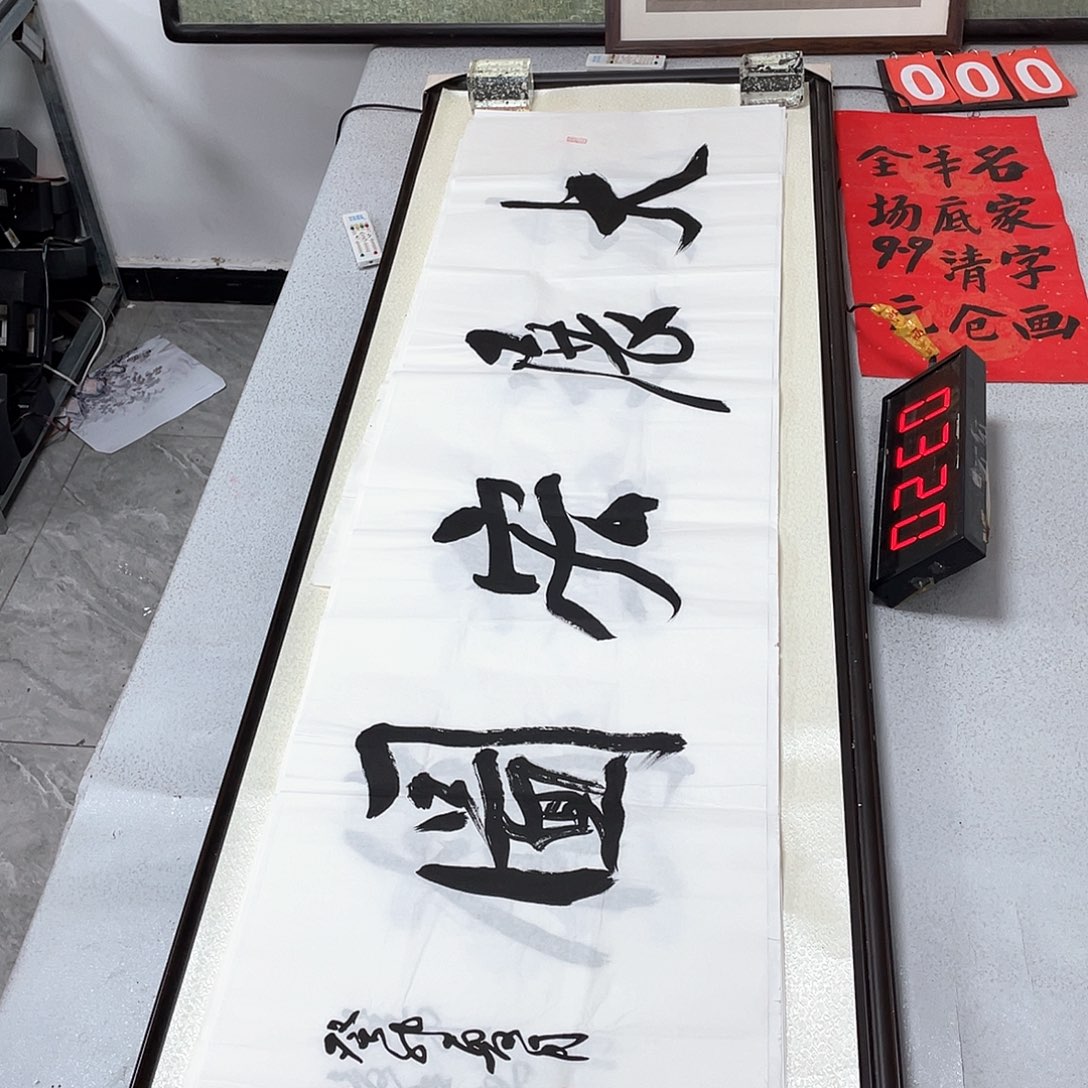 大展宏圖
000
名家字画
年底清仓
全场9.9元
0320